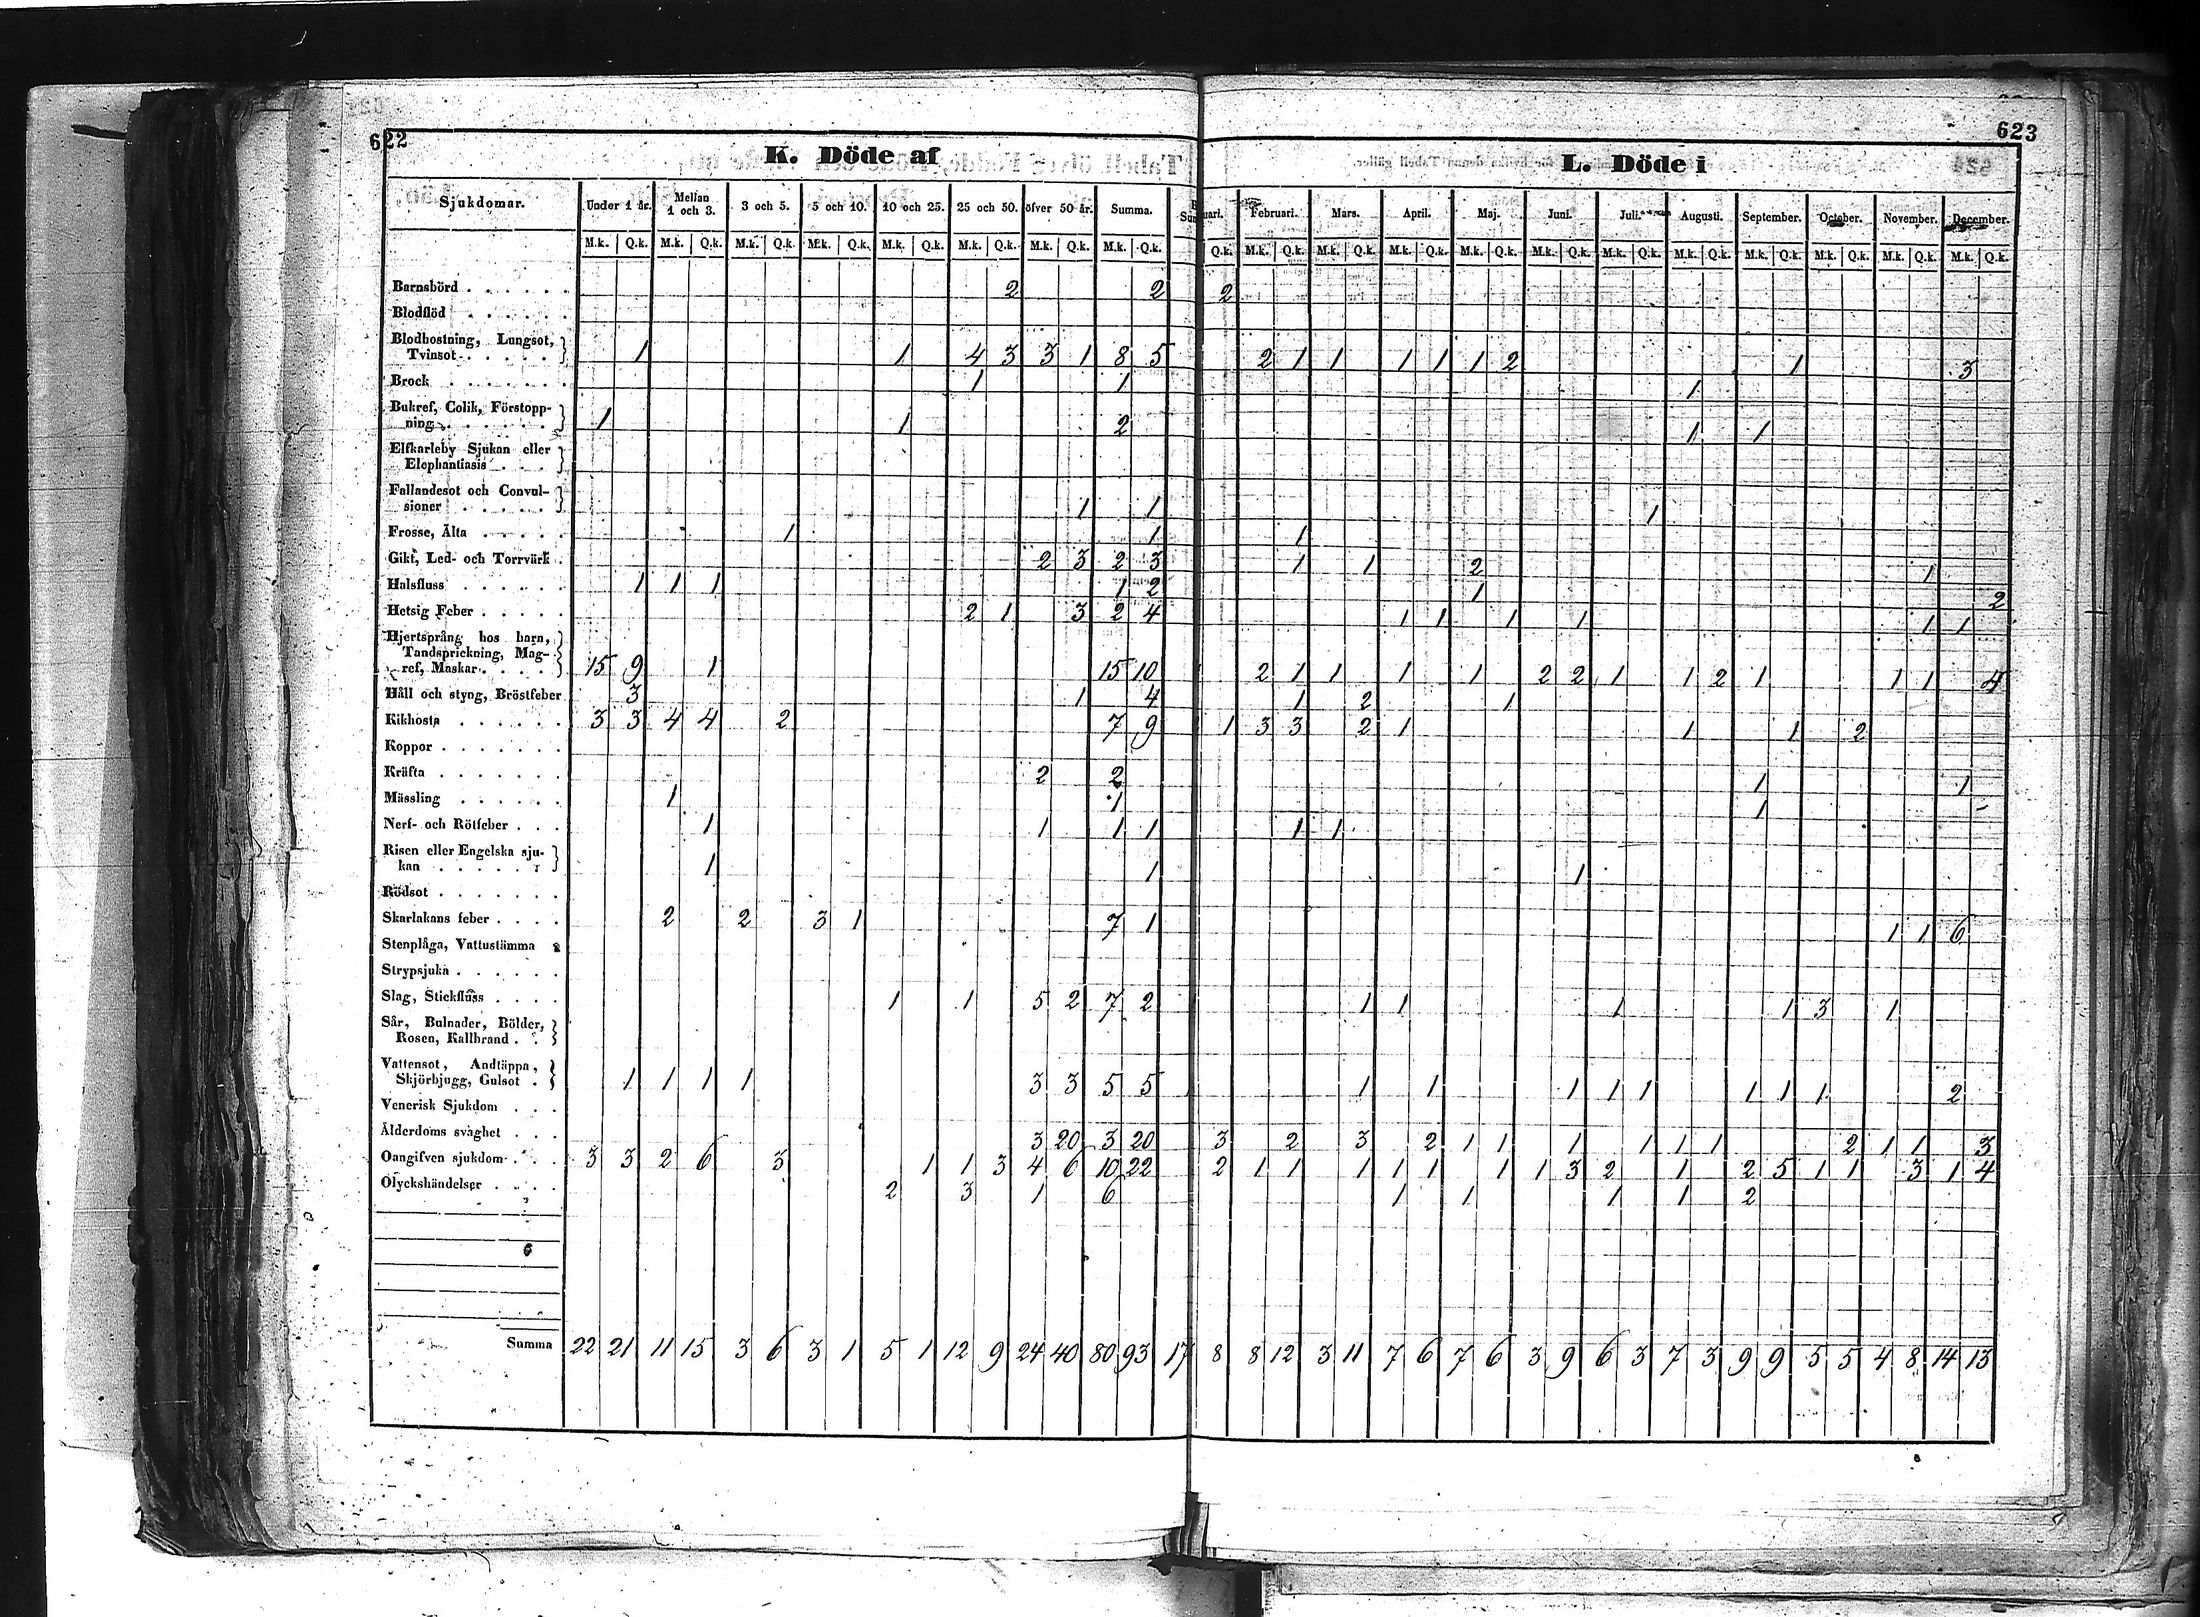 622
K. Döde af
Sjukdomar. Under 1 år. Mellan 1 och 3. 3 och 5. 5 och 10. 10 och 25. 25 och 50. öfver 50 år. Summa.
M.k. Q.k. M.k. Q.k. M.k. Q.k. M.k. Q.k. M.k. Q.k. M.k. Q.k. M.k. Q.k. M.k. Q.k.
Barnsbörd 2 2
Blodflöd
Blodhostning, Lungsot,
Tvinsot 1 1 4 3 3 1 8 5
Brock 1 1
Bukref, Colik, Förstopp-
ning 1 1 2
Elfkarleby Sjukan eller
Elephantiasis
Fallandesot och Convul-
sioner 1 1
Frosse, Älta 1 1
Gikt, Led- och Torrvärk 2 3 2 3
Halsfluss 1 1 1 1 2
Hetsig Feber 2 1 3 2 4
Hjertsprång hos barn,
Tandsprickning, Mag-
ref, Maskar 15 9 1 15 10
Håll och styng, Bröstfeber 3 1 4
Kikhosta 3 3 4 4 2 7 9
Koppor
Kräfta 2 2
Mässling 1 1
Nerf- och Rötfeber 1 1 1 1
Risen eller Engelska sju-
kan 1 1
Rödsot
Skarlakans feber 2 2 3 1 7 1
Stenplåga, Vattustämma
Strypsjuka
Slag, Stickfluss 1 1 5 2 7 2
Sår, Bulnader, Bölder,
Rosen, Kallbrand
Vattensot, Andtäppa,
Skjörbjugg, Gulsot 1 1 1 1 3 3 5 5
Venerisk Sjukdom
Ålderdoms svaghet 3 20 3 20
Oangifven sjukdom 3 3 2 6 3 1 1 3 4 6 10 22
Olyckshändelser 2 3 1 6
Summa 22 21 11 15 3 6 3 1 5 1 12 9 24 40 80 93
623
L. Döde i
uari. Februari. Mars. April. Maj. Juni. Juli. Augusti. September. October. November. December.
Q.k. M.k. Q.k. M.k. Q.k. M.k. Q.k. M.k. Q.k. M.k. Q.k. M.k. Q.k. M.k. Q.k. M.k. Q.k. M.k. Q.k. M.k. Q.k. M.k. Q.k.
2
2 1 1 1 1 1 2 1 3
1
1 1
1
1
1 1 2 1
1 2
1 1 1 1 1 1
2 1 1 1 1 2 2 1 1 2 1 1 1 4
1 2 1
1 3 3 2 1 1 1 2
1 1
1
1 1
1
1 1 6
1 1 1 1 3 1
1 1 1 1 1 1 1 1 2
3 2 3 2 1 1 1 1 1 1 2 1 1 3
2 1 1 1 1 1 1 1 3 2 1 2 5 1 1 3 1 4
1 1 1 1 2
17 8 8 12 3 11 7 6 7 6 3 9 6 3 7 3 9 9 5 5 4 8 14 13